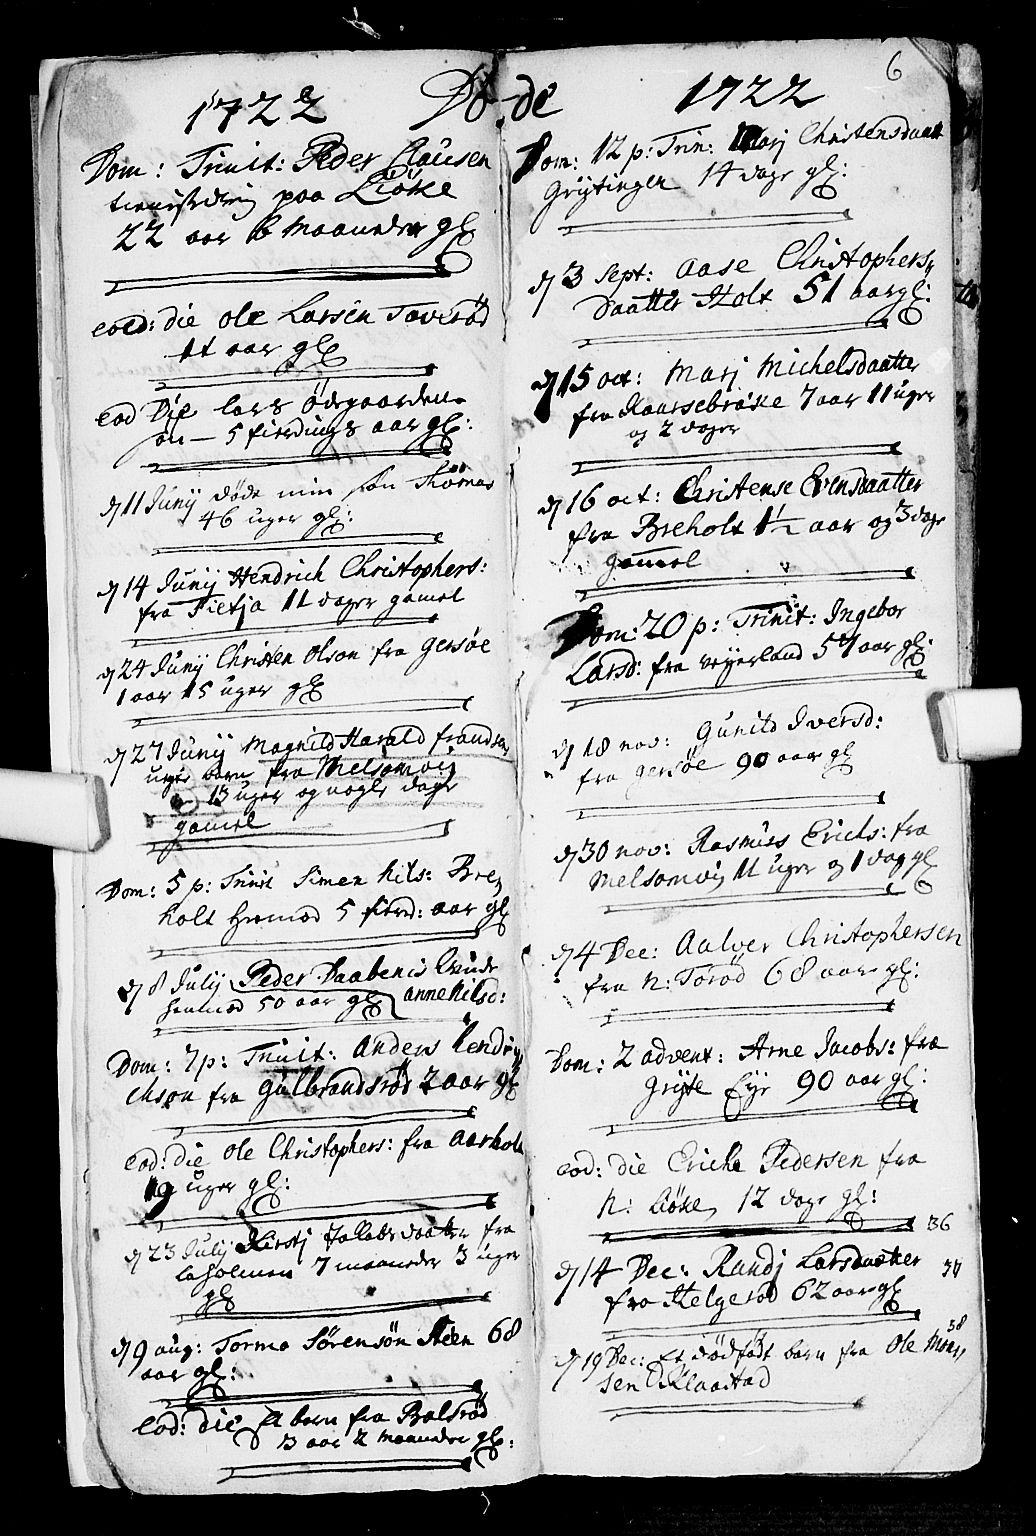 1722 Dø-
Dom: Trinit: Peder Clausen
paa Liøke
22 aar 6 maaneder gl
eod: die Ole Larsen Taverød
11 aar gl
eod Die Lars Ødegaardens
søn 5 fierdings aar gl:
d 11 Junij døde min søn Thomas
46 uger gl:
d 14 Junij Hendrich Christophers:
fra 11 dager gamel
d 24 Junij Christen Olson fra Gersøe
1 aar 15 uger gl
d 27 Junij Magnild Harald Frandsens
børn fra Melsomvig
13 uger og nogle dage
gamel
Dom: 5 p: Trinit Simen Nils: Bre
holt 5 fierd: aar gl
d 8 Julij Peder
50 aar gl Anne Nilsd:
Dom: 7 p: Trinit: Anders Hendri
chson fra Gulbrandsrød 2 aar gl
eod: die Ole Christophers: fra Aarholt
19 uger gl:
d 23 Julij Kirstj Jakobsdaatter fra
Laholmen 7 maaneder 3 uger
gl
d 9 aug: Tormo Sørensøn Steen 68
aar gl:
Eod: die Et barn fra Bolsrød
3 aar 2 maaneder gl:
de 1722
6
Dom: 12 p: Trin: Marj Christensdaatt
Grytingen 14 dage gl:
d 3 Sept: Aase Christophers
Daatter Holt 51 aar gl:
d 15 oct: Marj Michelsdaatter
fra 7 aar 11 uger
og 2 dager
d 16 oct: Christense Evensdaatter
fra Breholt 1½ aar og 3 dage
gamel
Dom: 20 p: Trinit: Ingebor
Larsd: fra Vejerland aar gl:
d 18 nov: Gunild Iversd:
fra Gersøe 90 aar gl
d 30 nov: Rasmuss Erichs: fra
Melsomvig 11 uger og 1 dag gl
d 4 Dec: Aalver Christophersen
fra N: Torød 68 aar gl:
Dom: 2 advent: Arne Jacobs: fra
Gryte Eje 90 aar gl:
eod: die Erich Pedersen fra
N: Liøke, 12 dage gl:
36
d 14 Dec: Randj Larsdaatter 37
fra Helgerød 62 aar gl
38
d 19 Dec: Et dødfødt barn fra Ole
sen Klaastad